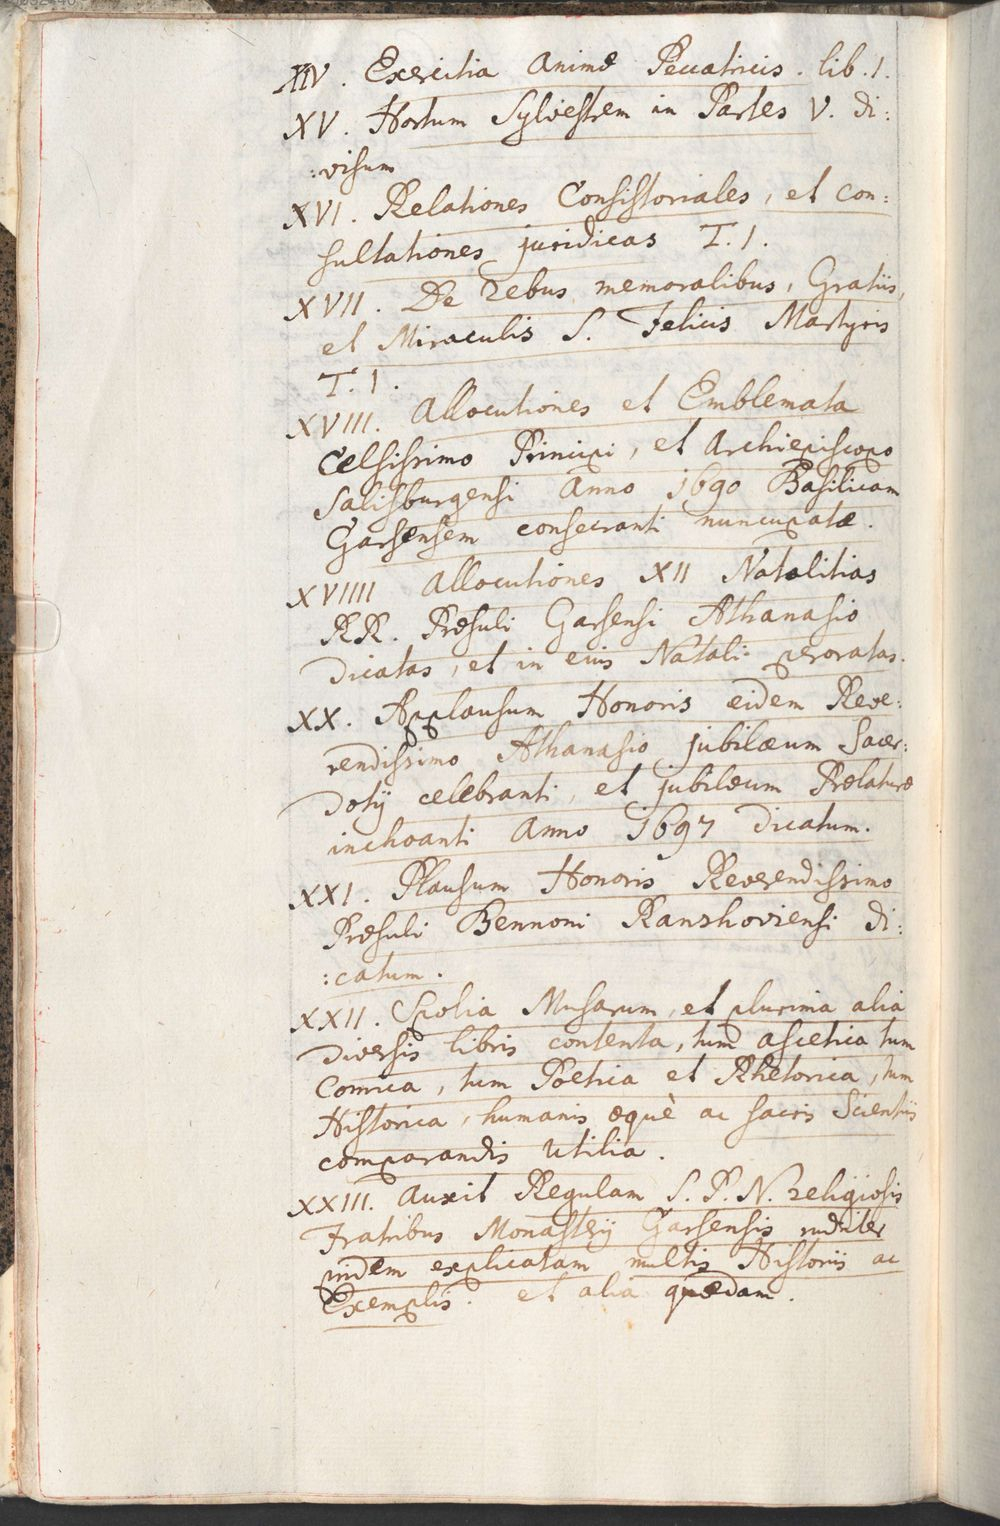 XIV. Exercitia Animæ Peccatricis. lib. 1.
XV. Hortum Sylvestrem in Partes V. di:
:visum
XVI. Relationes Consistoriales, et con:
sultationes juridicas T. 1.
XVII. De rebus memoralibus, Gratiis,
et Miraculis S. Felicis Martyris
T. 1.
XVIII. Allocutiones et Emblemata
Celsissimo Principi, et Archiepiscopo
Salisburgensi Anno 1690 Basilicam
Garsensem consecranti nuncupatæ.
XVIIII Allocutiones XII Natalitias
RR. Præsuli Garsensi Athanasio
dicatas, et in eius Natali peroratas.
XX. Applausum Honoris eidem Reve:
rendissimo Athanasio jubilæum Sacer:
dotij celebranti, et jubilæum Prælaturæ
inchoanti Anno 1697 dicatum.
XXI. Plausum Honoris Reverendissimo
Præsuli Bennoni Ranshoviensi di:
:catum.
XXII. Spolia Musarum, et plurima alia
diversis libris contenta, tum ascetica tum
Comica, tum Poetica et Rhetorica, tum
Historica, humanis æquè ac sacris Scientiis
comparandis utilia.
XXIII. Auxit Regulam S. P. N. religiosis
Fratribus Monasterij Garsensis
pridem explicatam multis Historiis ac
Exemplis. et alia quædam.